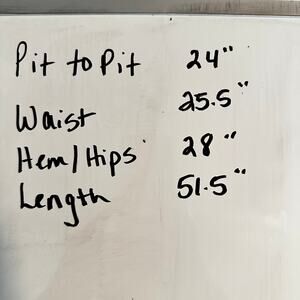 Pit to Pit 24"
Waist 25.5"
Hem/Hips 28"
Length 51.5"